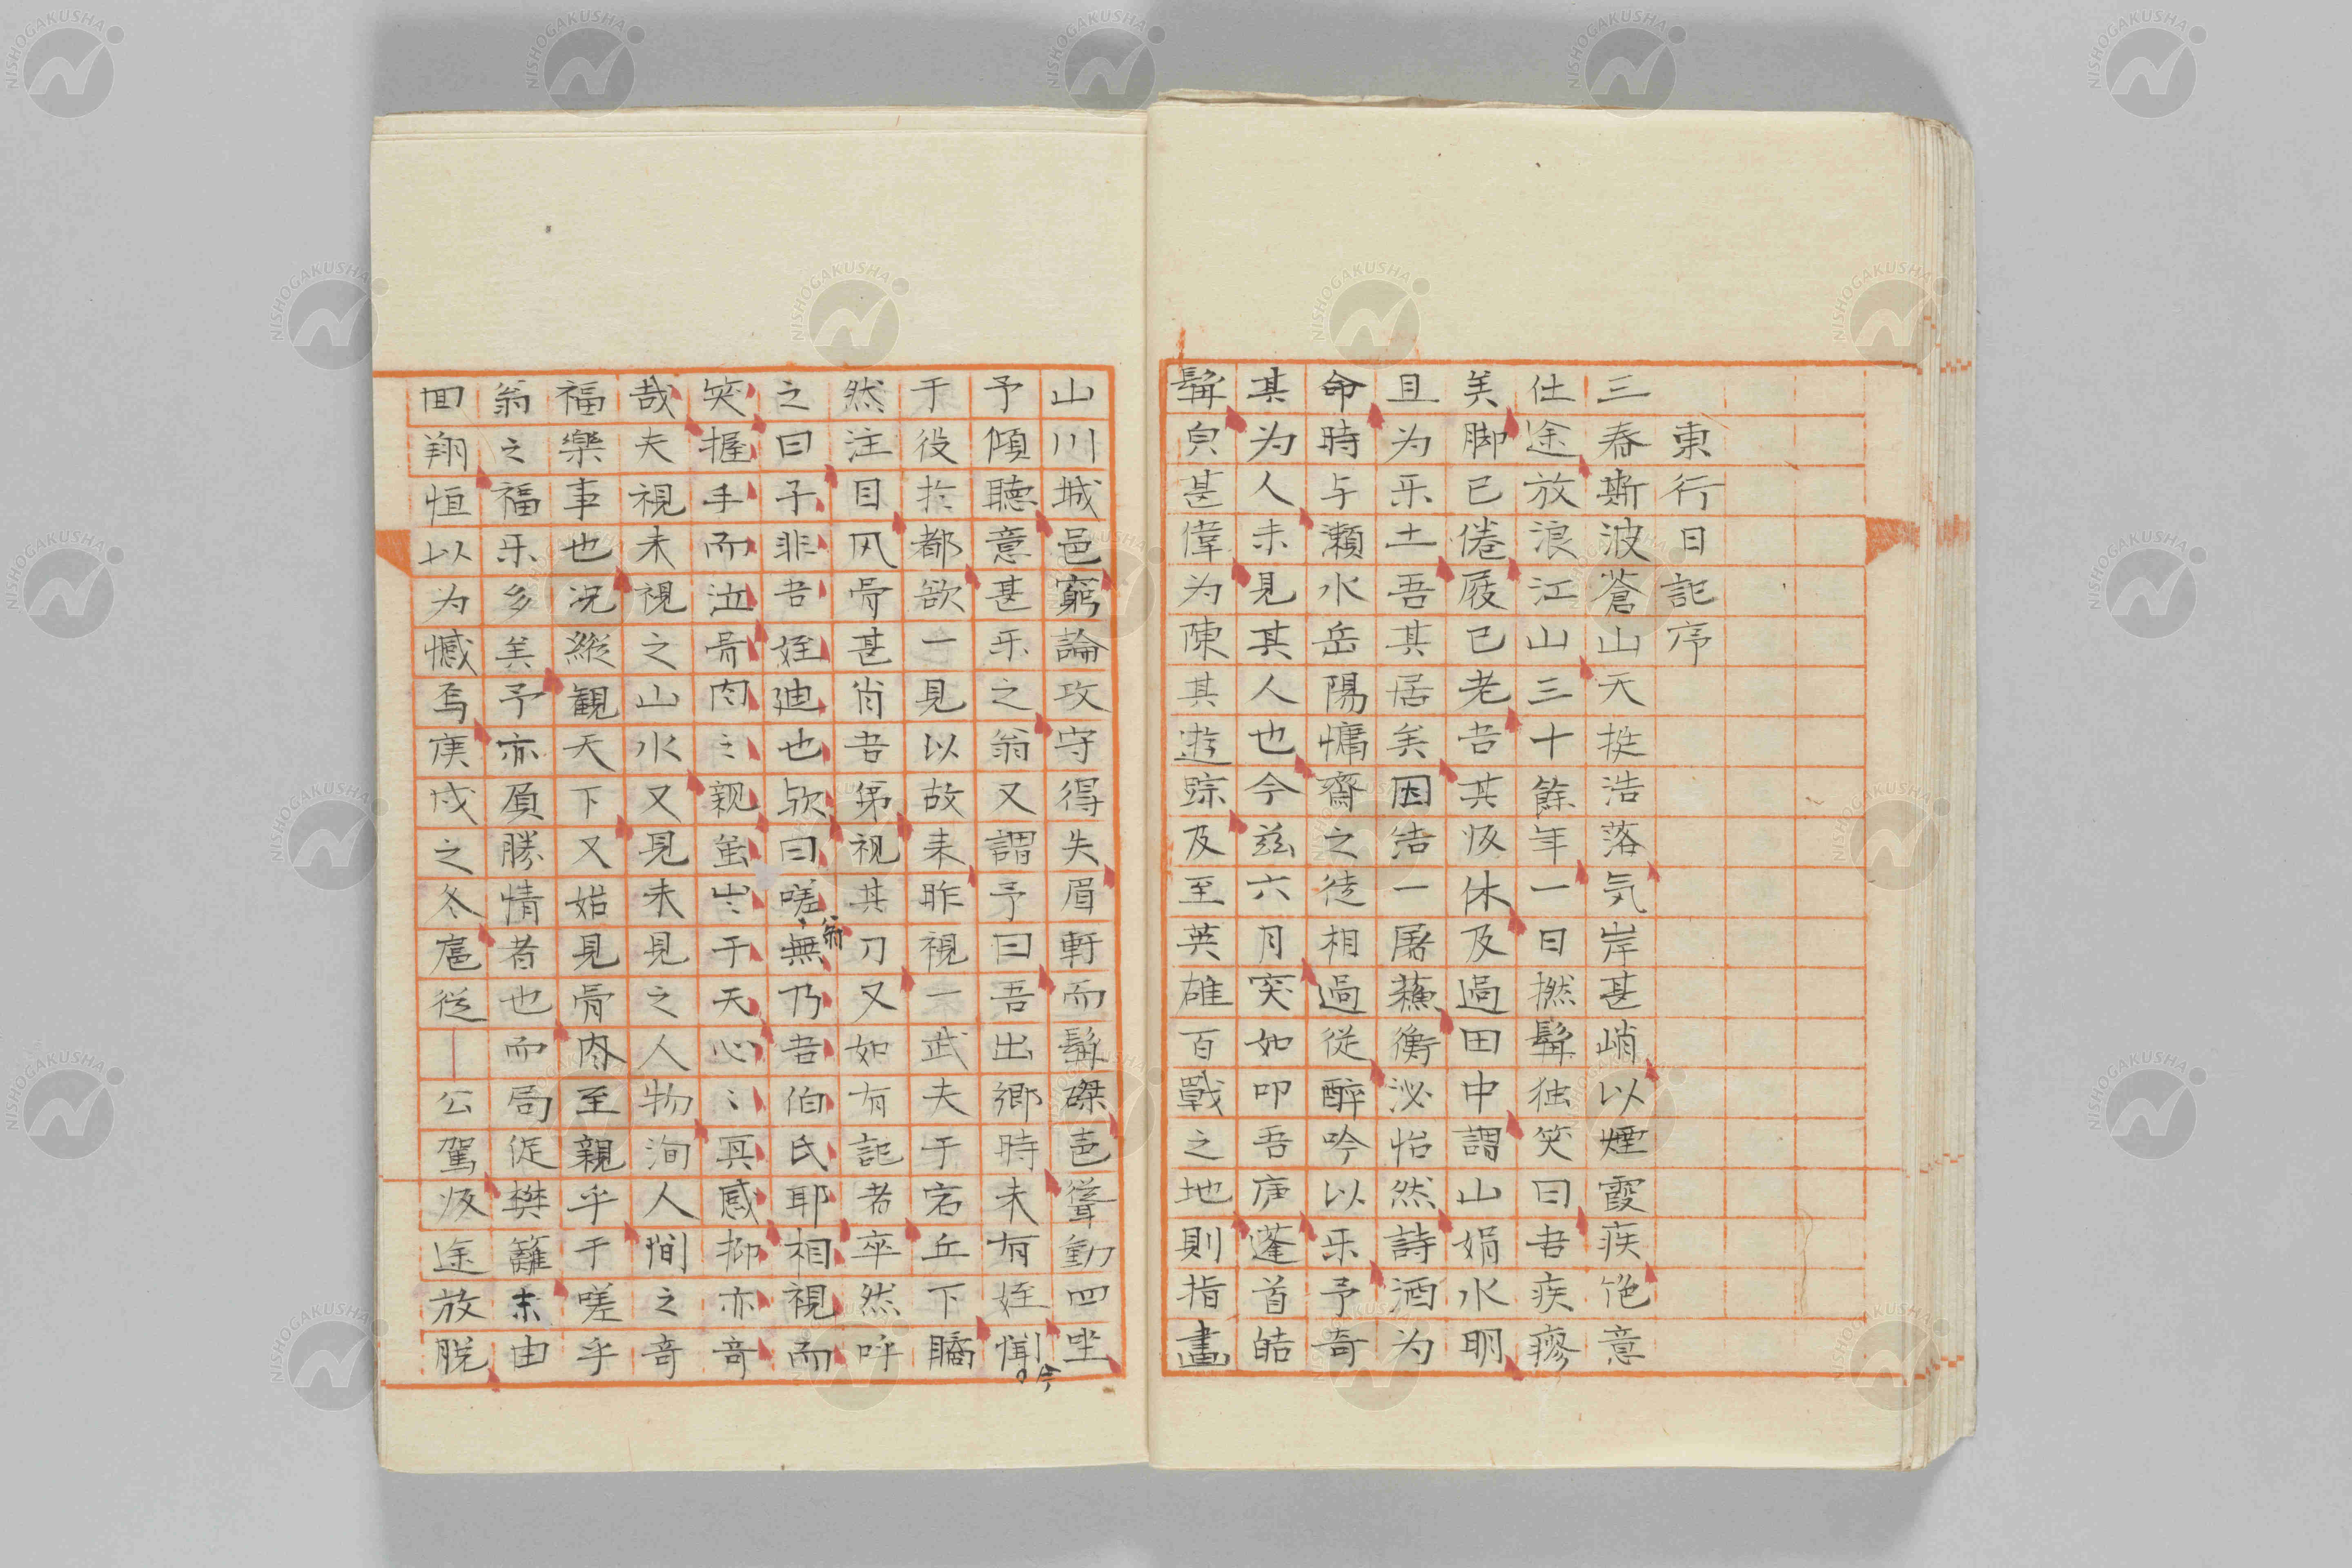 東行日記序
三春斯波蒼山天挺浩落気岸甚峭以煙霞疾飽意
仕途放浪江山三十餘年一日撚髯独笑曰吾疾瘳
矣脚已倦屐已老吾其返休及過田中謂山娟水明
且为乐土吾其居矣因结一屠蘇衡泌怡然詩酒为
命時与瀬水岳陽慵齋之徒相過従酔吟以乐予奇
其为人未見其人也今兹六月突如叩吾庐蓬首皓
髯皃甚偉为陳其遊踪及至英雄百戰之地則指畫
山川城邑窮論攻守得失眉軒而髯磔音聳動四坐
予傾聴意甚乐之翁又謂予曰吾出郷時未有姪聞今
于役於都欲一見以故来昨視一武夫于宕丘下驕
然注目风骨甚肖吾弟视其刀又如有記者卒然呼
之曰子非吾姪廸也欤曰嗟無翁乃吾伯氏耶相視而
笑握手而泣骨肉之親蓋出于天心之冥感抑亦奇
哉夫視未視之山水又見未見之人物洵人間之奇
福樂事也况縦観天下又始見骨肉至親乎于嗟乎
翁之福乐多矣予亦原勝情者也而局促樊籬末由
囬翔恒以为憾焉庚戌之冬扈従｜公駕返途放脱
NISHOGAKUSHA